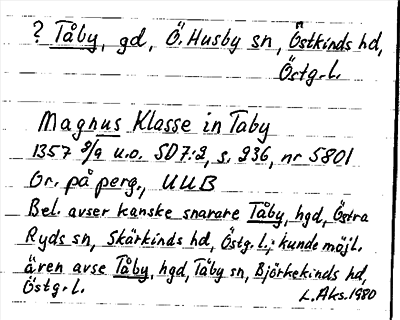 ? Tåby, gd, Ö. Husby sn, Östkinds hd,
Östg.l.
Magnus Klasse in Taby
1357 8/9 u.o. SD7:2, s. 236, nr 5801
Or. på perg., UUB
Bel. avser kanske snarare Tåby, hgd, Östra
Ryds sn, Skärkinds hd, Östg.l.; kunde möjl.
även avse Tåby, hgd, Tåby sn, Björkekinds hd,
Östg.l.
L.Aks.1980